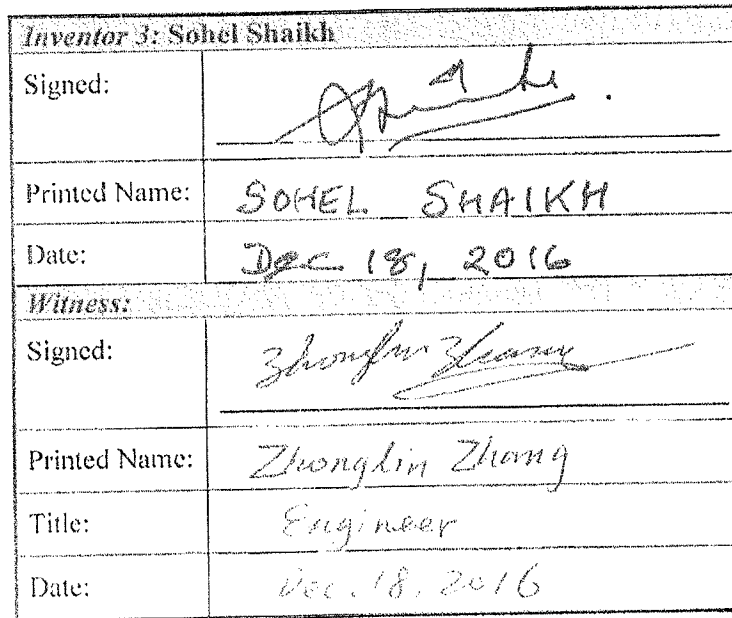 Inventor 3: Sohel Shaikh
Signed:
Printed Name: SOHEL SHAIKH
Date: Dec 18, 2016
Witness:
Signed: Zhonglin Zhang
Printed Name: Zhonglin Zhang
Title: Engineer
Date: Dec. 18, 2016